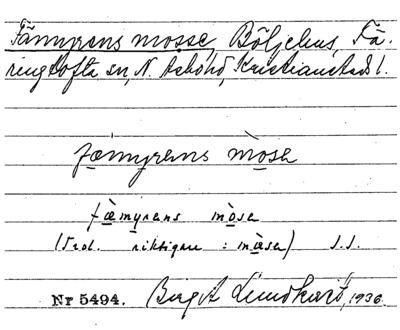 Fämyrens mosse, Böljehus, Fä-
ringtofta sn, N. Åsbohd, Kristianstads l.
fæmyrens mosa
fæmyrens mosa
(Trol. riktigare: måsa) S.S.
Nr 5494. Birgit Lundkvist, 1936.